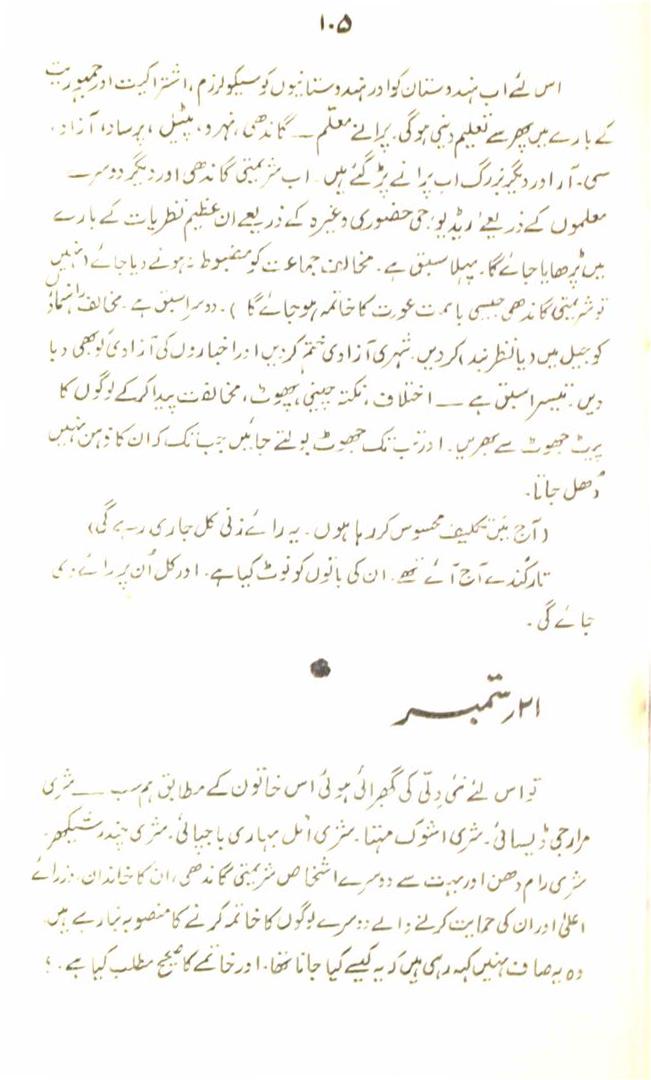 ۱۰۵
اس لئے اب ہندوستان کو اور ہندوستانیوں کو سیکولرزم، اشتراکیت اور جمہوریت
کے بارے میں پھر سے تعلیم دینی ہوگی۔ پرانے معلّم — گاندھی، نہرو، پٹیل، پرساد، آزاد،
سی۔ آر اور دیگر بزرگ اب پرانے پڑ گئے ہیں۔ اب شریمتی گاندھی اور دیگر دوسرے
معلموں کے ذریعے، ریڈیو، جی حضوری وغیرہ کے ذریعے ان عظیم نظریات کے بارے
میں پڑھایا جائے گا۔ پہلا سبق ہے۔ مخالف جماعت کو مضبوط نہ ہونے دیا جائے (نہیں
تو شریمتی گاندھی جیسی باہمت عورت کا خاتمہ ہو جائے گا)۔ دوسرا سبق ہے۔ مخالف راہنماؤں
کو جیل میں دیا نظر بند، کر دیں۔ شہری آزادی ختم کر دیں اور اخباروں کی آزادی کو بھی دبا
دیں۔ تیسرا سبق ہے — اختلاف، نکتہ چینی، پھوٹ، مخالفت پیدا کر کے لوگوں کا
پیٹ جھوٹ سے بھریں۔ اور تب تک جھوٹ بولتے جائیں جب تک کہ ان کا ذہن نہیں
دُھل جاتا۔
(آج میں تکلیف محسوس کر رہا ہوں۔ یہ رائے زنی کل جاری رہے گی)
تارکنڈے آج آئے تھے۔ ان کی باتوں کو نوٹ کیا ہے۔ اور کل اُن پر رائے دی
جائے گی۔
۲۱ر ستمبر
تو اس لئے نئی دلّی کی گھبرائی ہوئی اس خاتون کے مطابق ہم سب — شری
مرارجی ڈیسائی۔ شری اشوک مہتا۔ شری اٹل بہاری باجپائی۔ شری چندر شیکھر۔
شری رام دھن اور بہت سے دوسرے اشخاص شریمتی گاندھی، ان کا خاندان، وزرائے
اعلیٰ اور ان کی حمایت کرنے والے دوسرے لوگوں کا خاتمہ کرنے کا منصوبہ بنا رہے ہیں۔
وہ یہ صاف نہیں کہہ رہی ہیں کہ یہ کیسے کیا جانا تھا۔ اور خاتمے کا صحیح مطلب کیا ہے۔ ؟